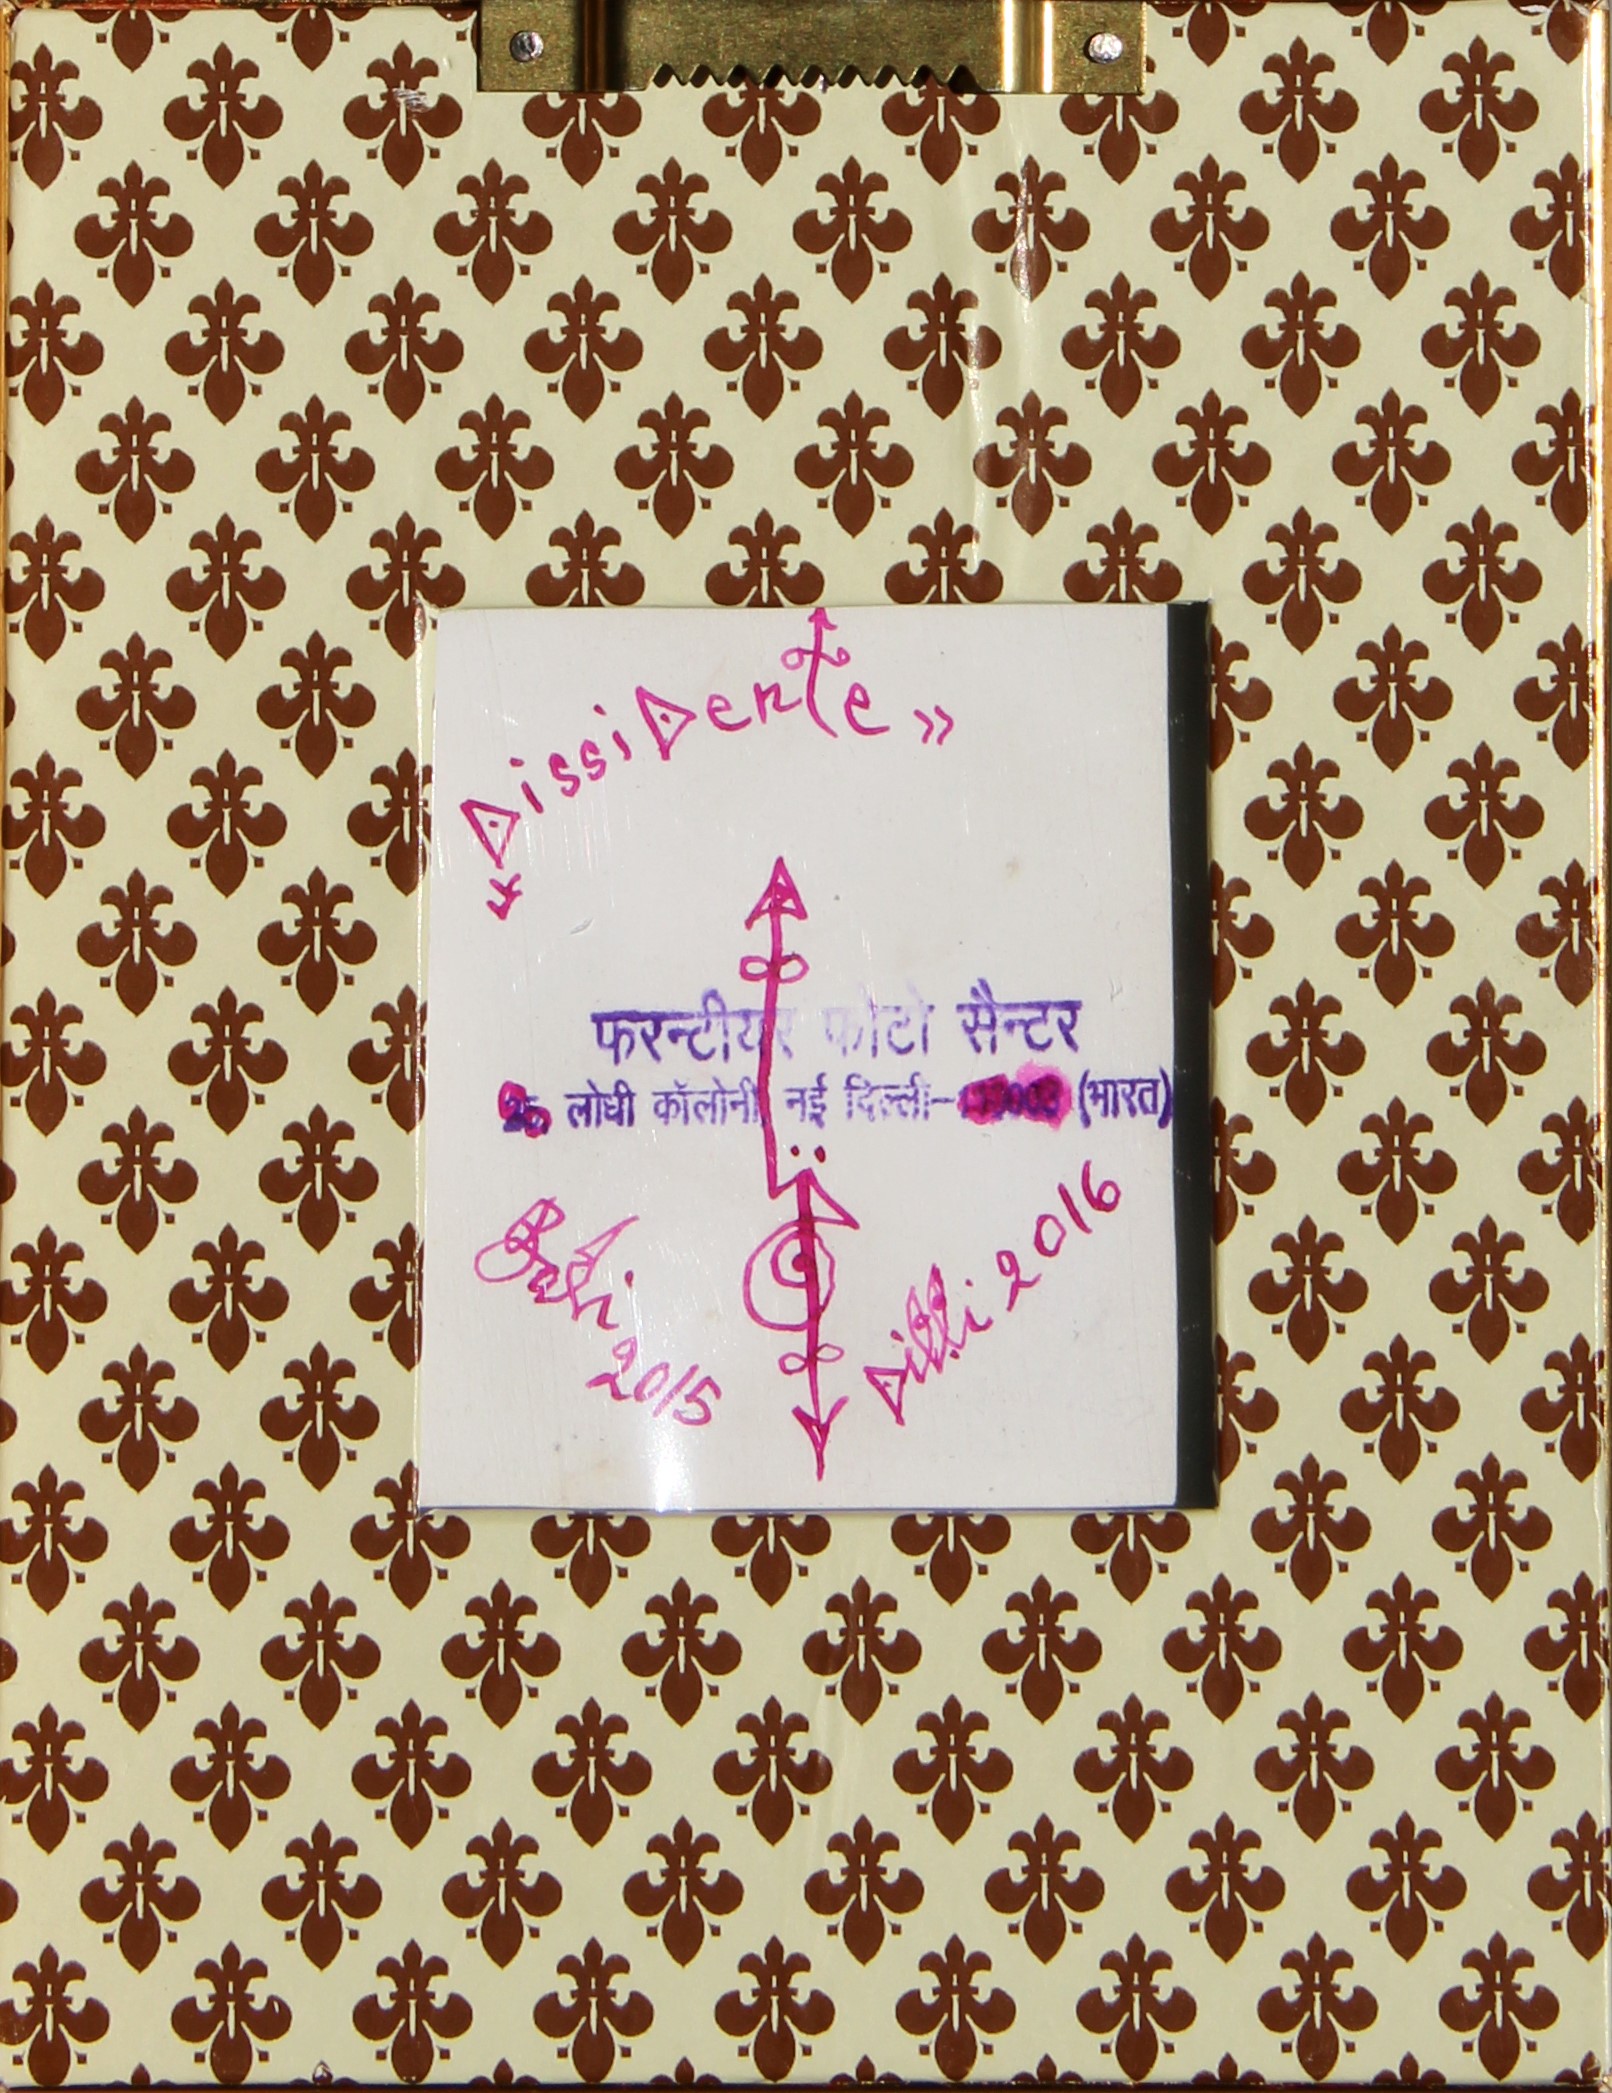 « Dissidente »
फरन्टीयर फोटो सैन्टर
26, लोधी कॉलोनी, नई दिल्ली-110003 (भारत)
2015
Dilli 2016